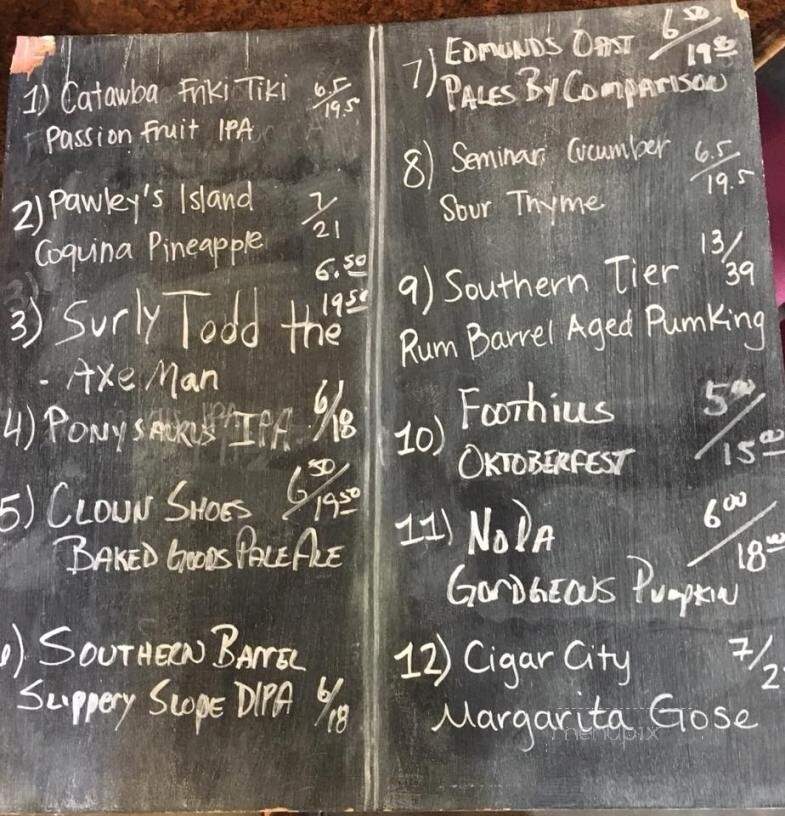 1) Catawba Friki Tiki 6.5/19.5
Passion Fruit IPA
2) Pawley's Island 7/21
Coquina Pineapple
3) Surly Todd the 6.50/19.50
- Axe Man
4) PONYSAURUS IPA 6/18
5) CLOWN SHOES 6.50/19.50
BAKED GOODS PALE ALE
SOUTHERN BARREL
SLIPPERY SLOPE DIPA 6/18
7) EDMUNDS OAST 6.50/19.50
PALES BY COMPARISON
8) Seminar Cucumber 6.5/19.5
Sour Thyme
9) Southern Tier 13/39
Rum Barrel Aged Pumking
10) Foothills 5.00/15.00
OKTOBERFEST
11) NoDa 6.00/18.00
GORDGEOUS PUMPKIN
12) Cigar City 7/2
Margarita Gose
menupix